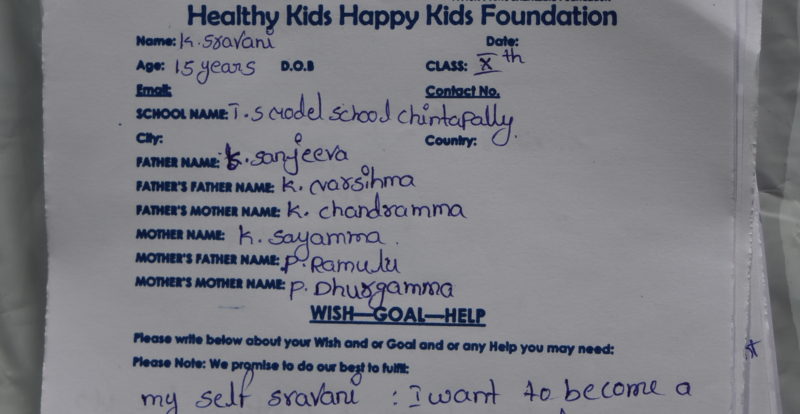 Healthy Kids Happy Kids Foundation
Name: K. Sravani Date:
Age: 15 years D.O.B CLASS: X th
Email: Contact No.
SCHOOL NAME: T. S Model School Chintapally.
City: Country:
FATHER NAME: K. Sanjeeva
FATHER'S FATHER NAME: K. Narsihma
FATHER'S MOTHER NAME: K. chandramma
MOTHER NAME: K. Sayamma.
MOTHER'S FATHER NAME: P. Ramulu
MOTHER'S MOTHER NAME: P. Dhurgamma
WISH—GOAL—HELP
Please write below about your Wish and or Goal and or any Help you may need:
Please Note: We promise to do our best to fulfil:
my self sravani : I want to become a